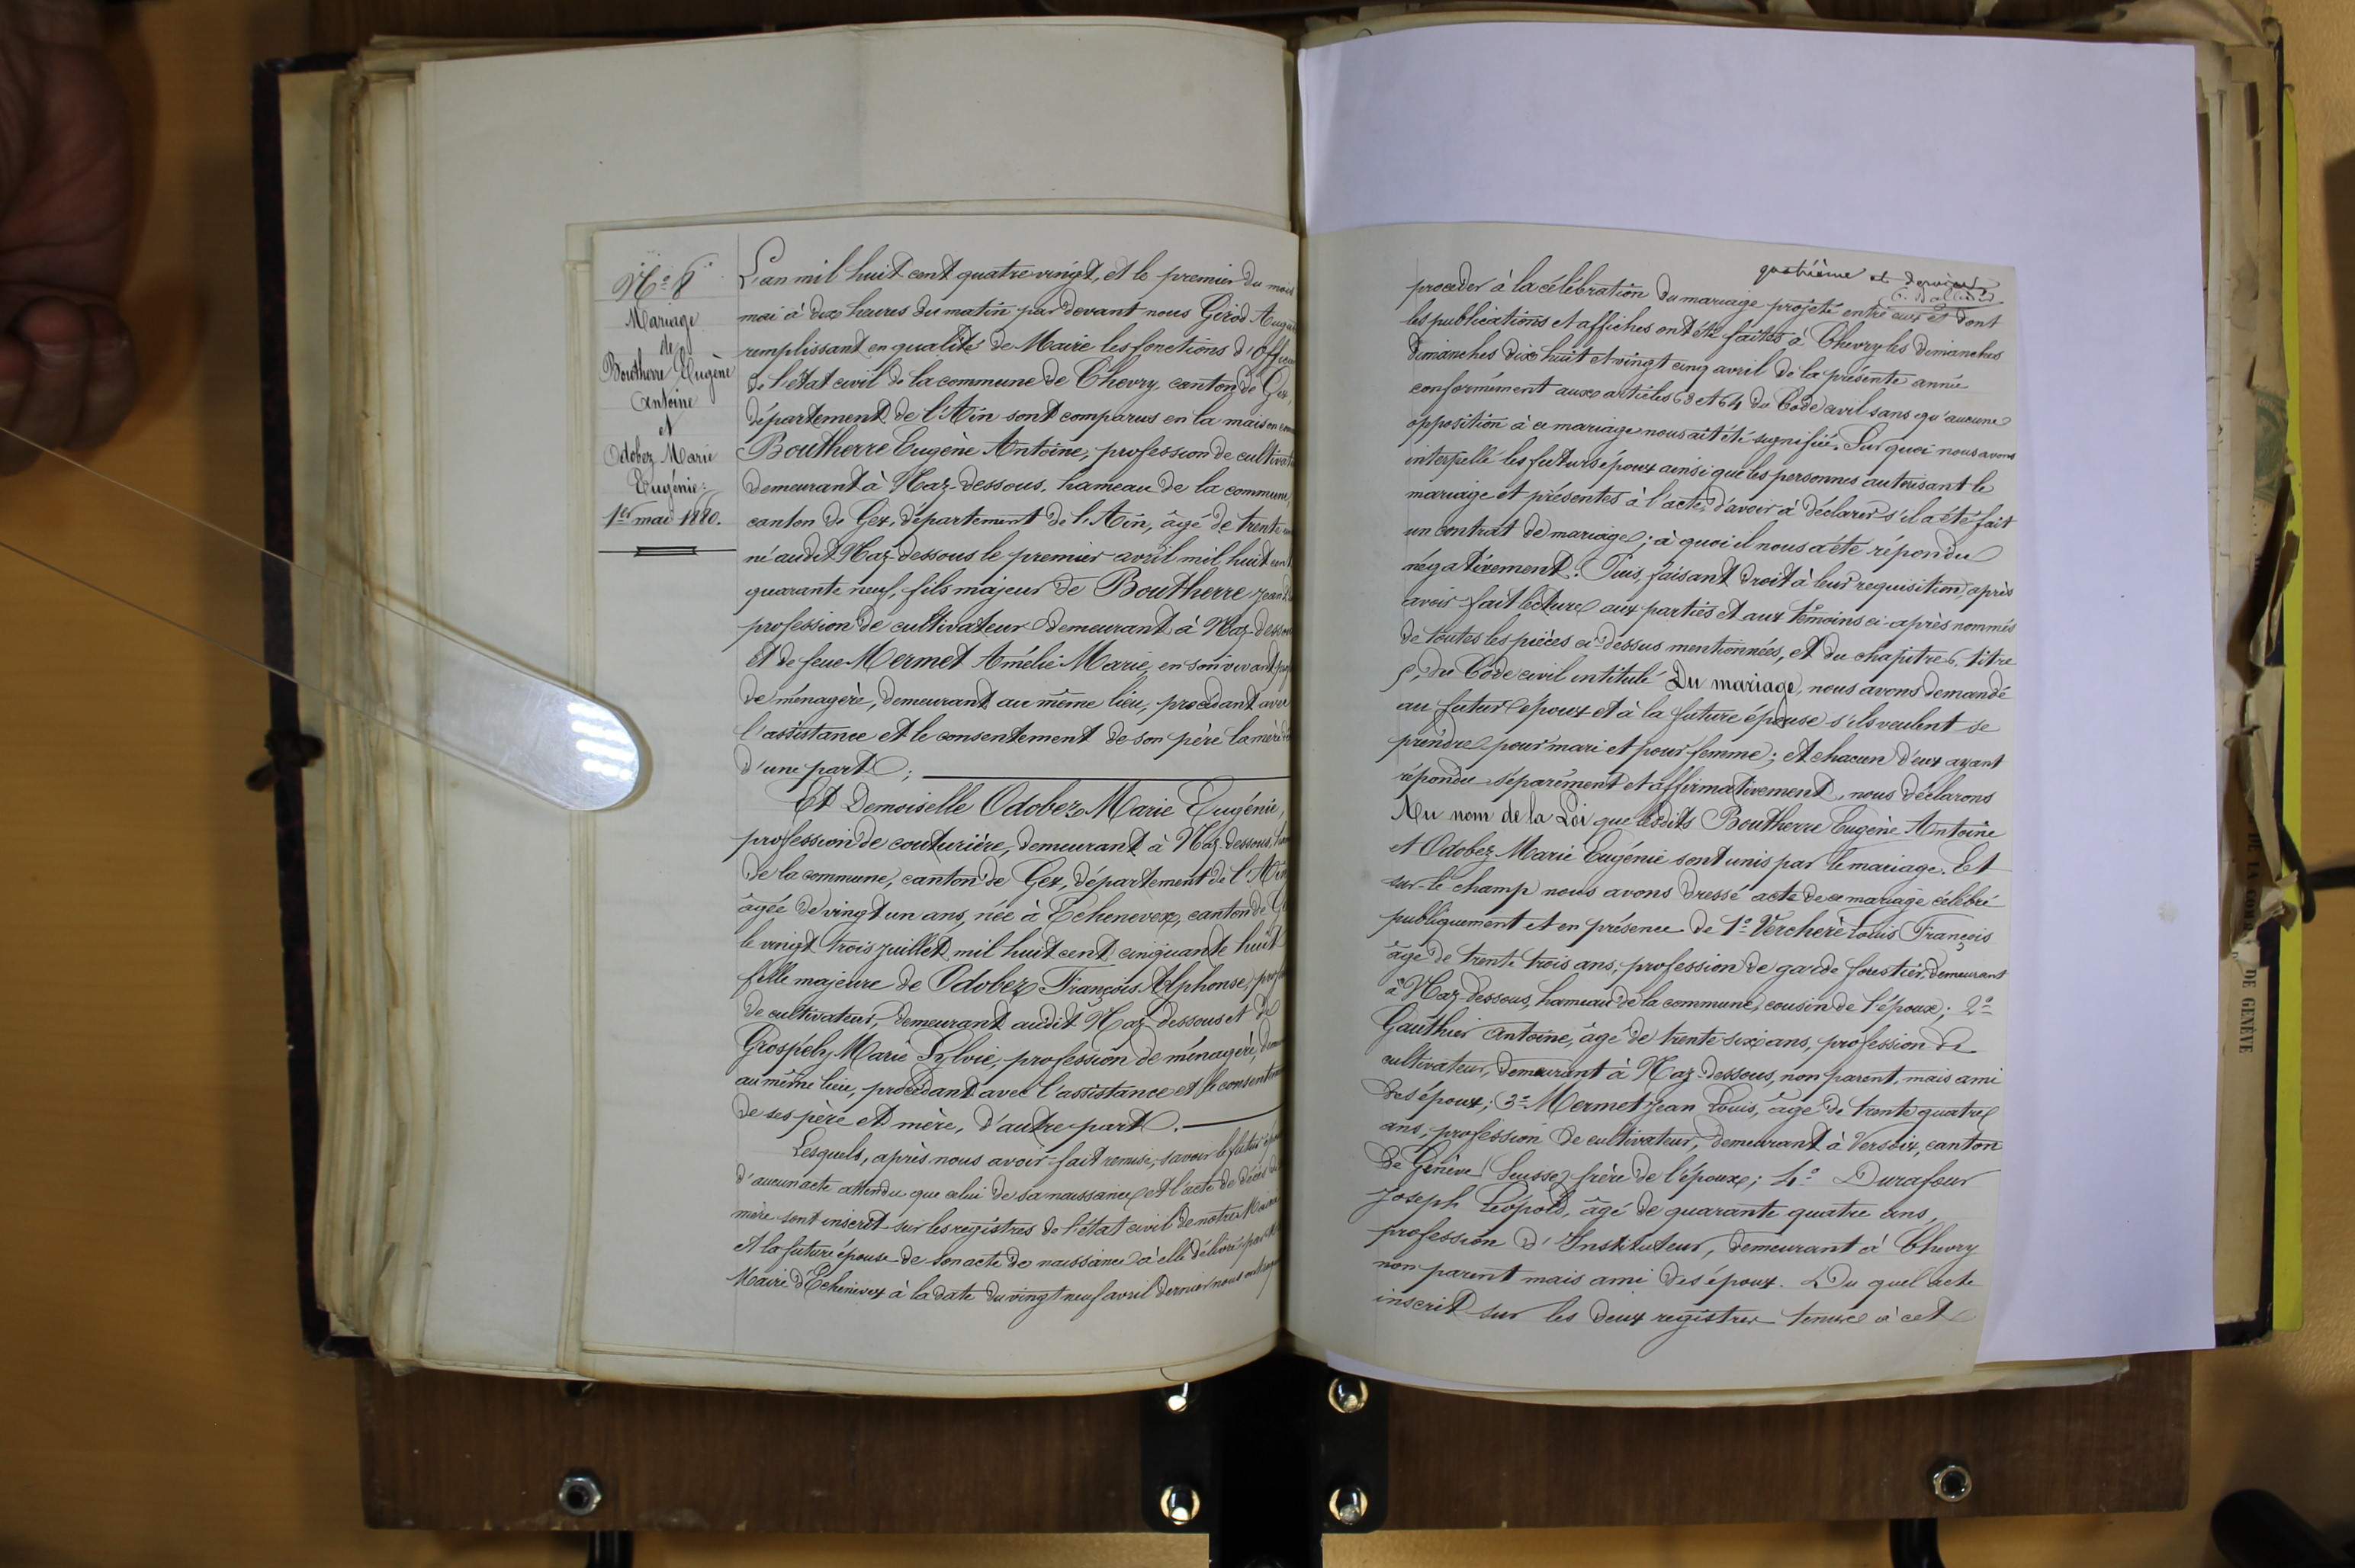 N° 8
Mariage
de
Boutherre Eugène
Antoine
et
Odobez Marie
Eugénie
1er mai 1880.
L'an mil huit cent quatre vingt, et le premier du mois
mai à dix heures du matin par devant nous Girod
remplissant en qualité de Maire les fonctions d'Offic
de l'état civil de la commune de Chevry, canton de Gex,
département de l'Ain sont comparus en la maison
Boutherre Eugène Antoine, profession de cultivat
demeurant à Naz-dessous, hameau de la commune,
canton de Gex, département de l'Ain, âgé de trente
né audit Naz-dessous le premier avril mil huit cent
quarante neuf, fils majeur de Boutherre Jean
profession de cultivateur demeurant à Naz-dessou
et de feue Mermet Amélie Marie, en son vivant
de ménagère, demeurant au même lieu, procédant avec
l'assistance et le consentement de son père la mère
d'une part ;
Et Demoiselle Odobez Marie Eugénie,
profession de couturière, demeurant à Naz-dessous, ham
de la commune, canton de Gex, département de l'Ain
âgée de vingt un ans, née à Echenevex, canton de G
le vingt trois juillet mil huit cent cinquante huit
fille majeure de Odobez François Alphonse, prof
de cultivateur, demeurant audit Naz-dessous et de
Grospely Marie Sylvie, profession de ménagère, dem
au même lieu, procédant avec l'assistance et le consentem
de ses père et mère, d'autre part.
Lesquels, après nous avoir fait remise, savoir le futur épou
d'aucun acte attendu que celui de sa naissance et l'acte de décès de
mère sont inscrit sur les registres de l'état civil de notre Mairie
et la future épouse de son acte de naissance à elle délivré par
Maire d'Echenevex à la date du vingt neuf avril dernier nous ont
quatrième et dernier
procéder à la célébration du mariage projeté entre eux et dont
les publications et affiches ont été faites à Chevry les dimanches
dimanches dix huit et vingt cinq avril de la présente année
conformément aux articles 63 et 64 du Code civil sans qu'aucune
opposition à ce mariage nous ait été signifiée. Sur quoi nous avons
interpellé les futurs époux ainsi que les personnes autorisant le
mariage et présentes à l'acte, d'avoir à déclarer s'il a été fait
un contrat de mariage ; à quoi il nous a été répondu
négativement. Puis, faisant droit à leur requisition, après
avoir fait lecture aux parties et aux témoins ci-après nommés
de toutes les pièces ci-dessus mentionnées, et du chapitre 6, titre
5, du Code civil intitulé Du mariage, nous avons demandé
au futur époux et à la future épouse s'ils veulent se
prendre pour mari et pour femme ; et chacun d'eux ayant
répondu séparément et affirmativement, nous déclarons
Au nom de la Loi que lesdits Boutherre Eugène Antoine
et Odobez Marie Eugénie sont unis par le mariage. Et
sur-le champ nous avons dressé acte de ce mariage célébré
publiquement et en présence de 1° Verchère Louis François
âgé de trente trois ans, profession de garde forestier, demeurant
à Naz-dessous, hameau de la commune, cousin de l'époux ; 2°
Gauthier Antoine, âgé de trente-six ans, profession de
cultivateur, demeurant à Naz-dessous, non parent, mais ami
des époux ; 3° Mermet Jean Louis, âgé de trente quatre
ans, profession de cultivateur, demeurant à Versoix, canton
de Genève (Suisse) frère de l'époux ; 4° Durafour
Joseph Léopold, âgé de quarante quatre ans,
profession d'Instituteur, demeurant à Chevry
non parent mais ami des époux. Du quel acte
inscrit sur les deux registres tenus à cet
DE LA COUR
DE GENÈVE